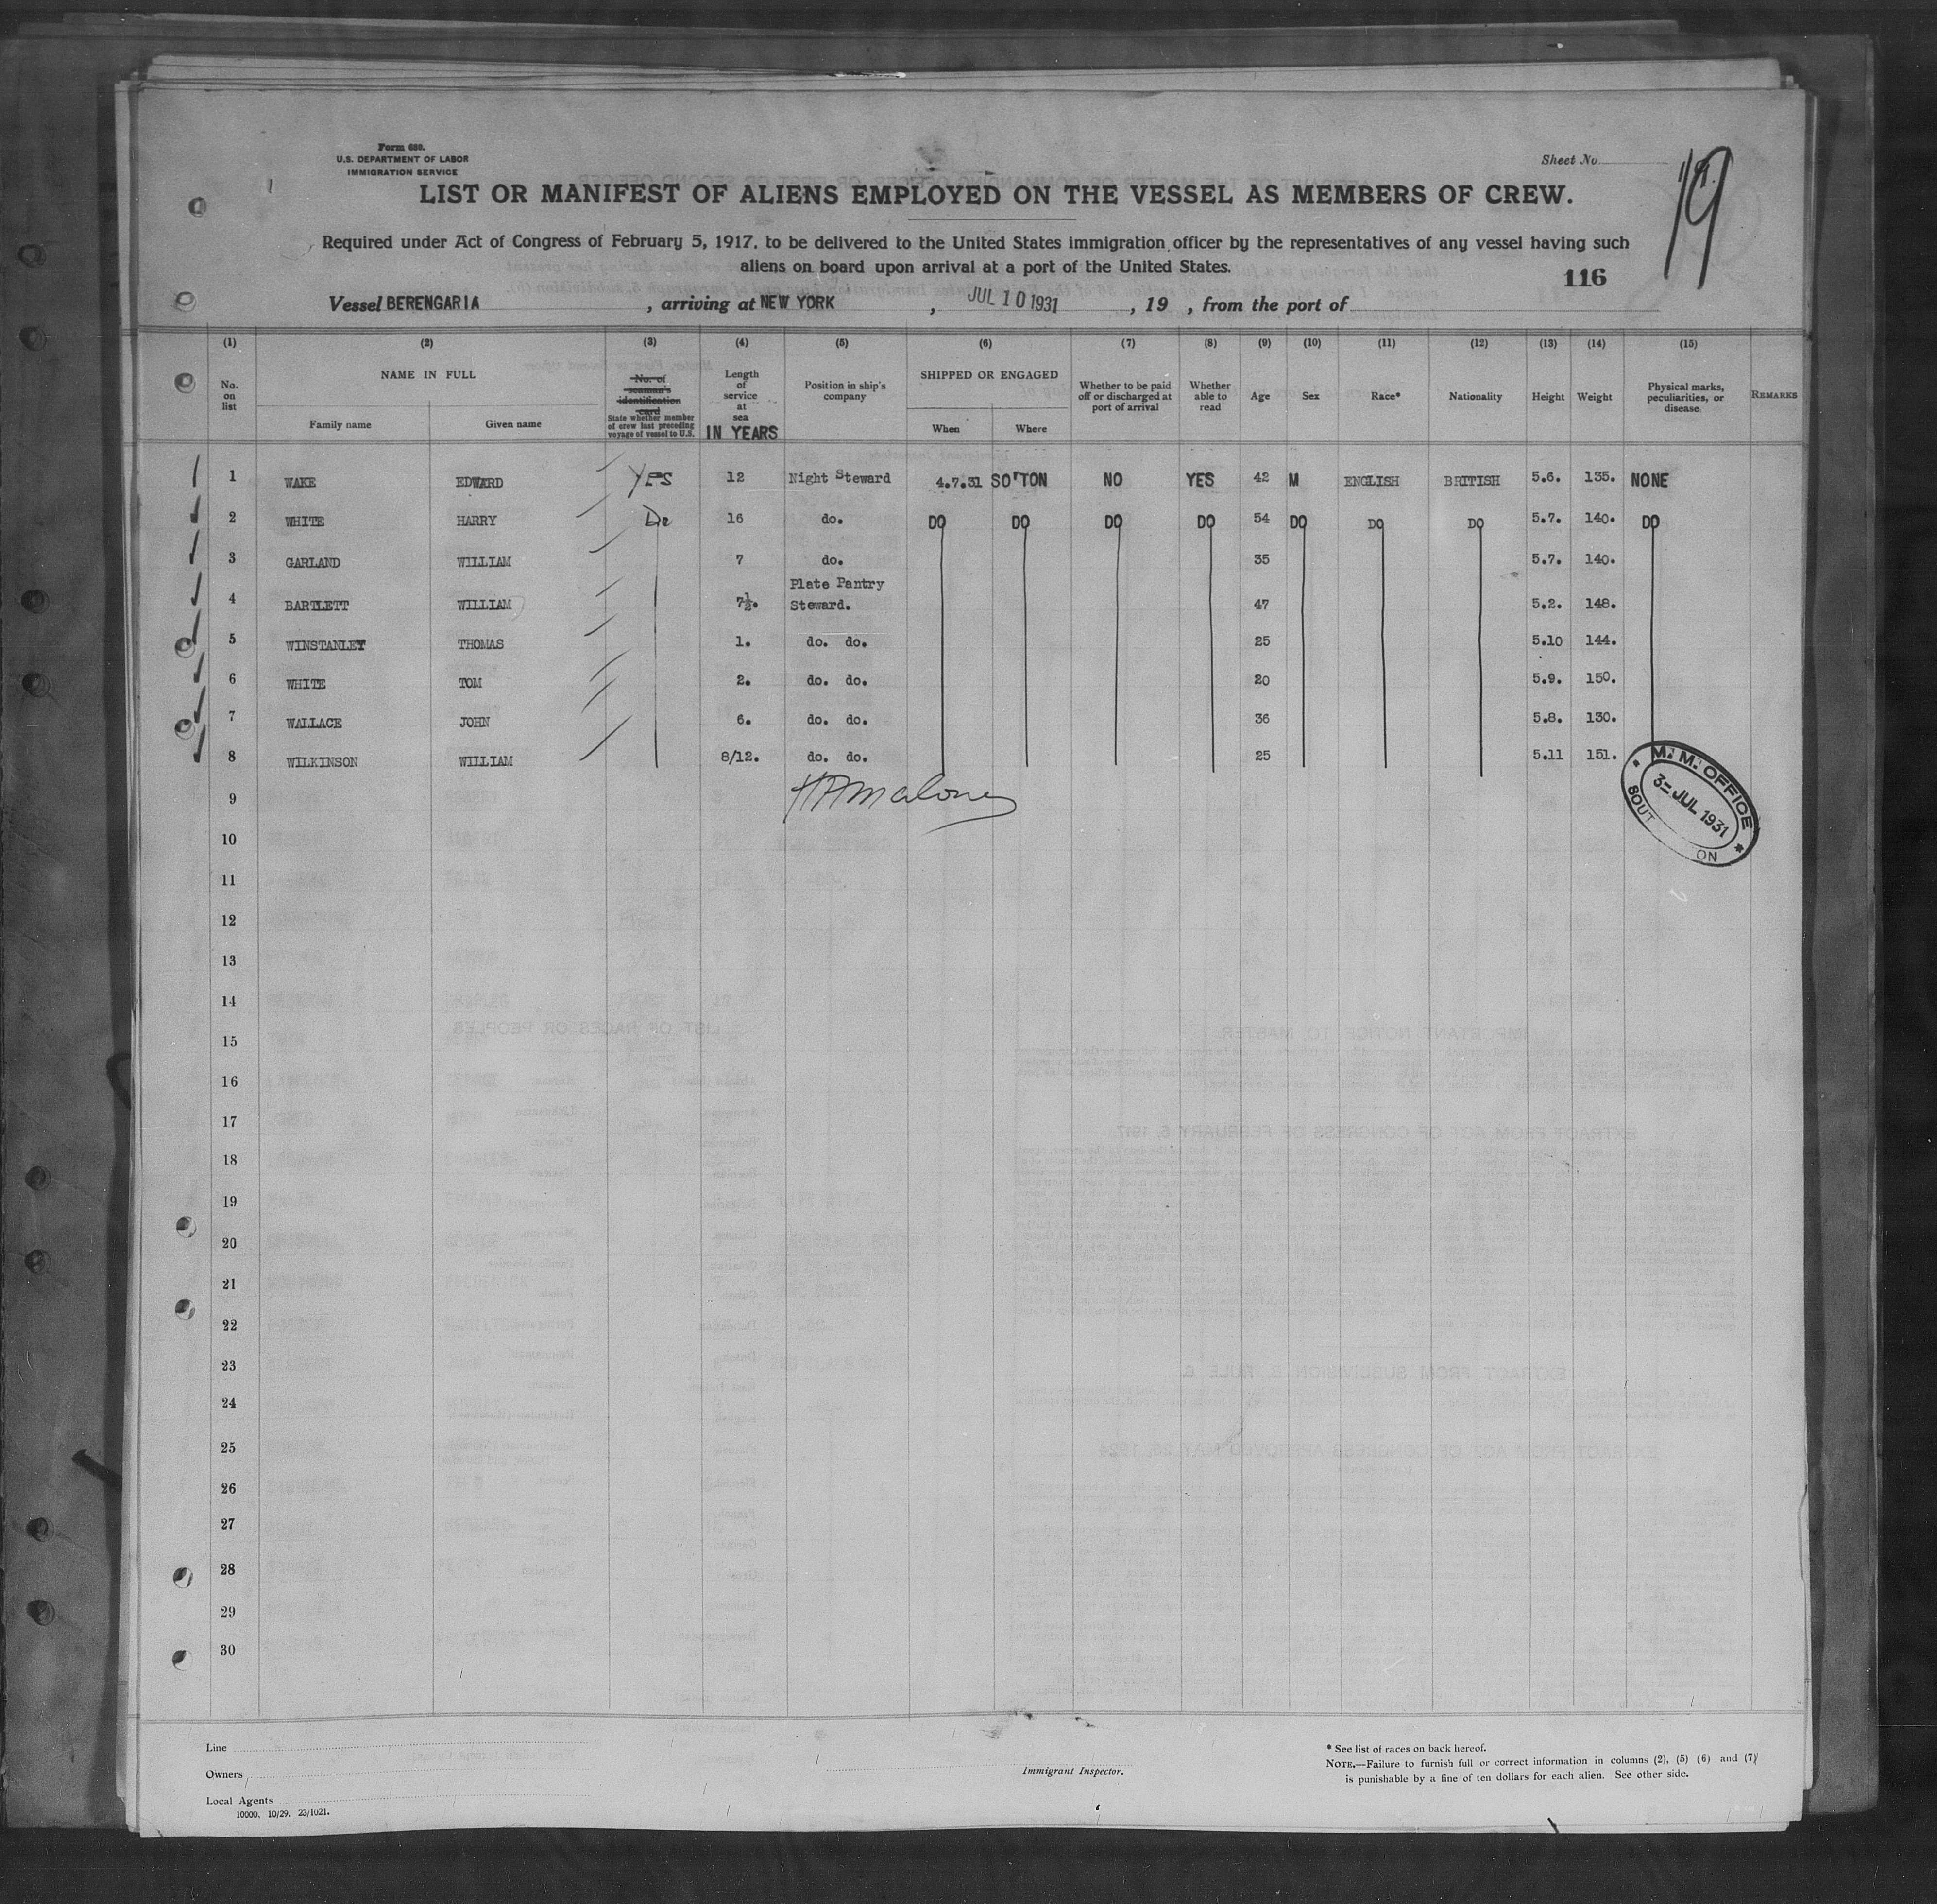 Form 680.
U.S. DEPARTMENT OF LABOR
IMMIGRATION SERVICE
Sheet No.
19
LIST OR MANIFEST OF ALIENS EMPLOYED ON THE VESSEL AS MEMBERS OF CREW.
Required under Act of Congress of February 5, 1917, to be delivered to the United States immigration officer by the representatives of any vessel having such
aliens on board upon arrival at a port of the United States.
116
Vessel BERENGARIA, arriving at NEW YORK, JUL 10 1931, 19 , from the port of
(1) (2) (3) (4) (5) (6) (7) (8) (9) (10) (11) (12) (13) (14) (15)
No. on list
NAME IN FULL
Family name Given name
No. of seaman's identification card
State whether member of crew last preceding voyage of vessel to U.S.
Length of service at sea IN YEARS
Position in ship's company
SHIPPED OR ENGAGED
When Where
Whether to be paid off or discharged at port of arrival
Whether able to read
Age Sex Race* Nationality Height Weight
Physical marks, peculiarities, or disease
REMARKS
1 WAKE EDWARD Yes 12 Night Steward 4.7.31 SO'TON NO YES 42 M ENGLISH BRITISH 5.6. 135. NONE
2 WHITE HARRY Do 16 do. DO DO DO DO 54 DO DO DO 5.7. 140. DO
3 GARLAND WILLIAM 7 do. 35 5.7. 140.
4 BARTLETT WILLIAM 7½. Plate Pantry Steward. 47 5.2. 148.
5 WINSTANLEY THOMAS 1. do. do. 25 5.10 144.
6 WHITE TOM 2. do. do. 20 5.9. 150.
7 WALLACE JOHN 6. do. do. 36 5.8. 130.
8 WILKINSON WILLIAM 8/12. do. do. 25 5.11 151.
M. M. OFFICE
3 = JUL 1931
SOUT ON
9
10
11
12
13
14
15
16
17
18
19
20
21
22
23
24
25
26
27
28
29
30
Line
Owners
Local Agents
10000, 10/29. 23/1021.
Immigrant Inspector.
* See list of races on back hereof.
NOTE.—Failure to furnish full or correct information in columns (2), (5) (6) and (7)
is punishable by a fine of ten dollars for each alien. See other side.